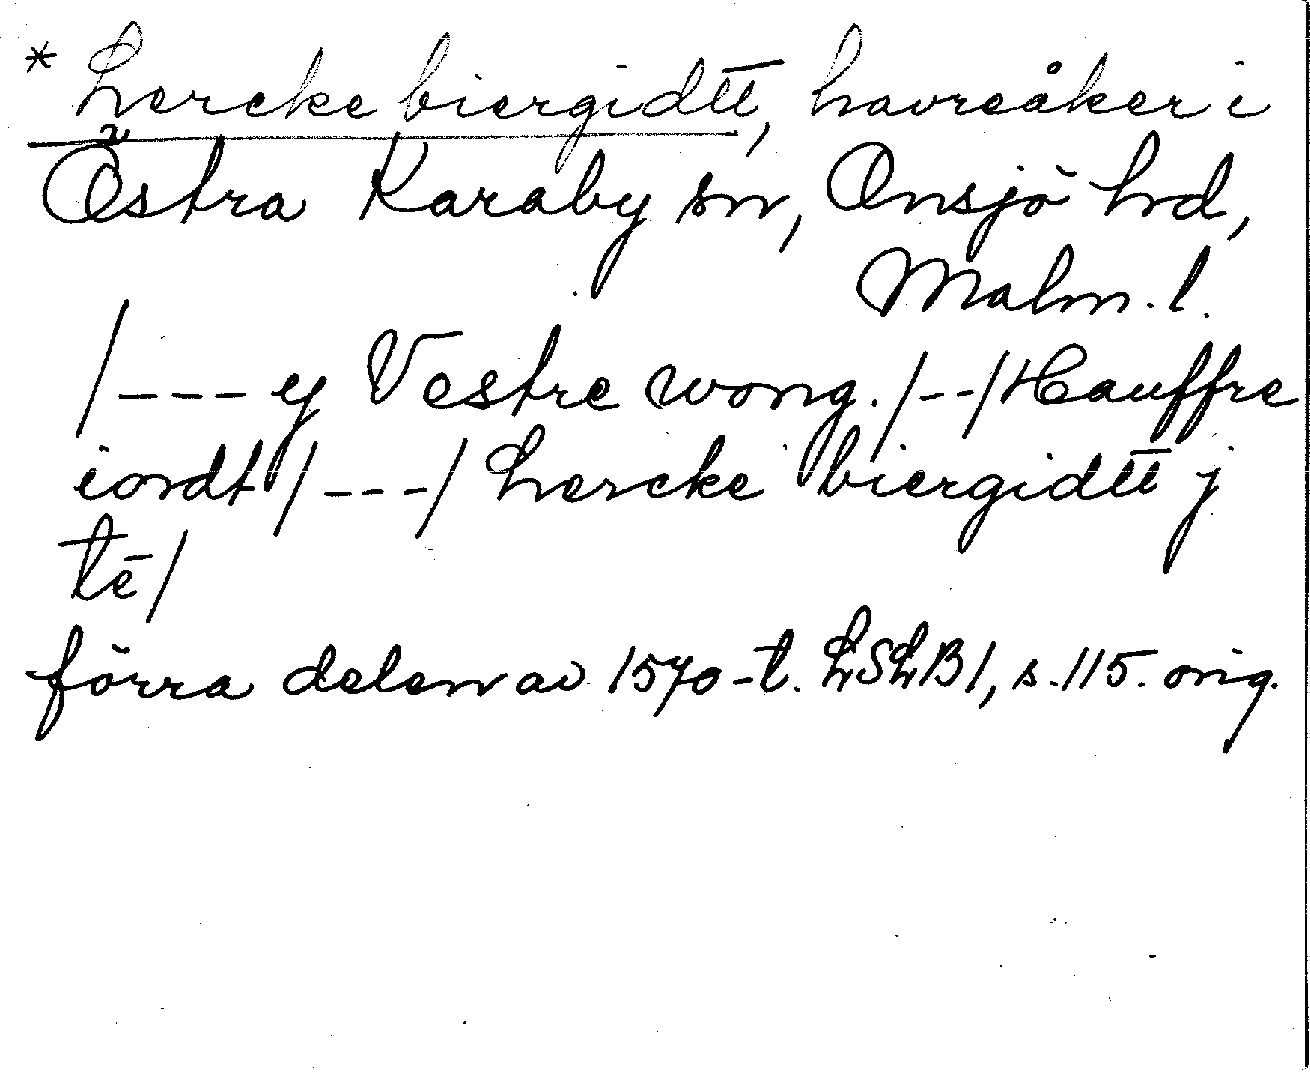 * Lercke biergidtt, havreåker i
Östra Karaby sn, Onsjö hd,
Malm. l.
/---ej Vestre wong./--/Hauffre
iordt/---/Lercke biergidtt j
tē/
förra delen av 1570-t. LSLB1, s.115. orig.